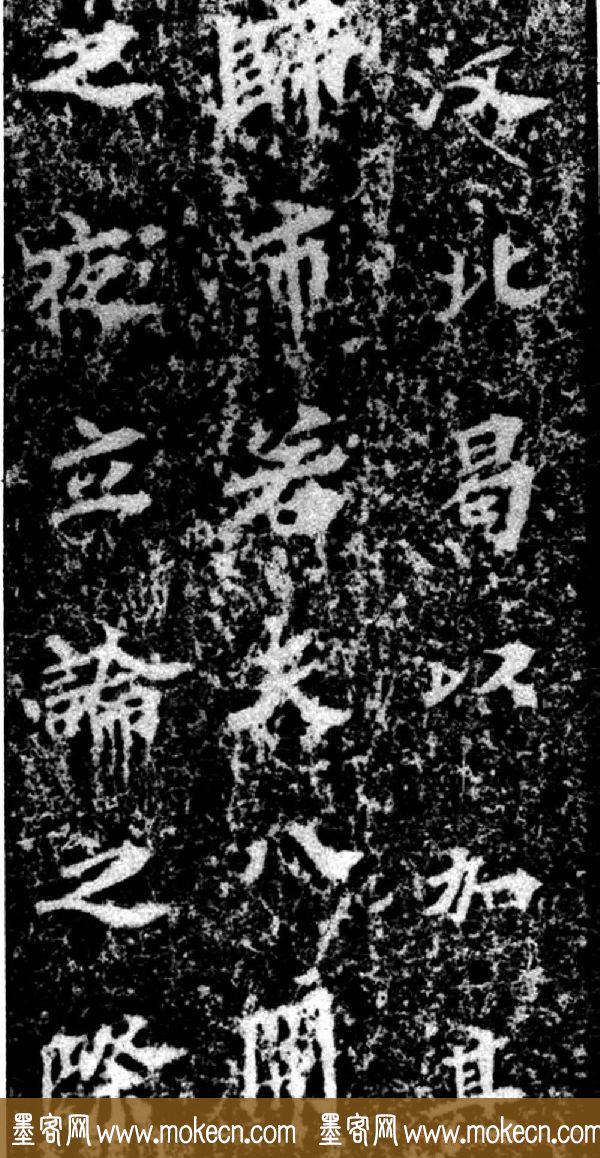 汶北曷以加其
歸市若夫八關
之夜立論之際
墨客网 www.mokecn.com 墨客网 www.mokecn.com